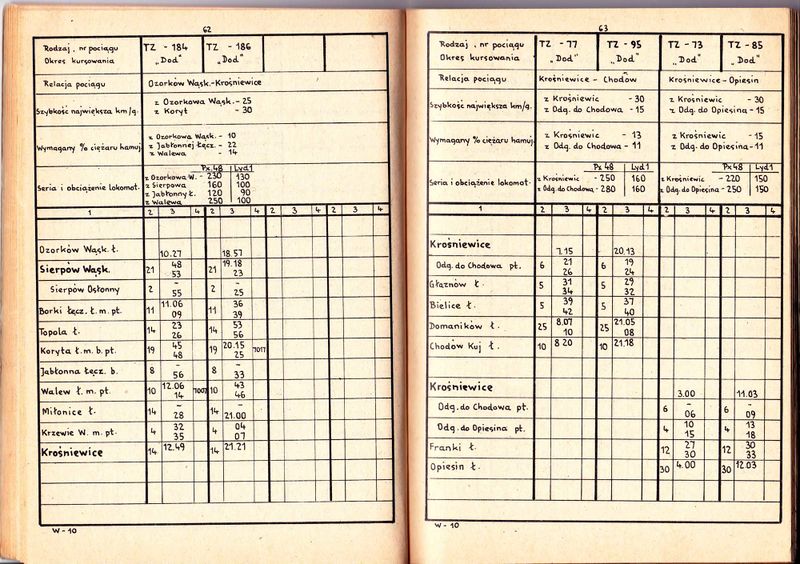 62
Rodzaj, nr pociągu TZ - 184 TZ - 186
Okres kursowania "Dod" "Dod"
Relacja pociągu Ozorków Wąsk.-Krośniewice
Szybkość największa km/g. z Ozorkowa Wąsk. - 25
z Koryt - 30
Wymagany % ciężaru hamuj. z Ozorkowa Wąsk. - 10
z Jabłonnej Łęcz. - 22
z Walewa - 14
Px48 Lyd1
Seria i obciążenie lokomot. z Ozorkowa W. - 230 130
z Sierpowa 160 100
z Jabłonny Ł. 120 90
z Walewa 250 100
1 2 3 4 2 3 4 2 3 4 2 3 4
Ozorków Wąsk. Ł. 10.27 18.57
Sierpów Wąsk. 21 48 21 19.18
53 23
Sierpów Osłonny 2 - 2 -
55 25
Borki Łęcz. Ł. m. pt. 11 11.06 11 36
09 39
Topola Ł. 14 23 14 53
26 56
Koryta Ł. m. b. pt. 19 45 19 20.15 7017
48 25
Jabłonna Łęcz. b. 8 - 8 -
56 33
Walew Ł. m. pt. 10 12.06 10 43
14 46
Miłonice Ł. 14 - 14 -
28 21.00
Krzewie W. m. pt. 4 32 4 04
35 07
Krośniewice 14 12.49 14 21.21
W-10
63
Rodzaj, nr pociągu TZ - 77 TZ - 95 TZ - 73 TZ - 85
Okres kursowania "Dod" "Dod" "Dod" "Dod"
Relacja pociągu Krośniewice - Chodów Krośniewice - Opiesin
Szybkość największa km/g. z Krośniewic - 30 z Krośniewic - 30
z Odg. do Chodowa - 15 z Odg. do Opiesina - 15
Wymagany % ciężaru hamuj. z Krośniewic - 13 z Krośniewic - 15
z Odg. do Chodowa - 11 z Odg. do Opiesina - 11
Px48 Lyd1 Px48 Lyd1
Seria i obciążenie lokomot. z Krośniewic - 250 160 z Krośniewic - 220 150
z Odg. do Chodowa - 280 160 z Odg. do Opiesina - 250 150
1 2 3 4 2 3 4 2 3 4 2 3 4
Krośniewice 7.15 20.13
Odg. do Chodowa pt. 6 21 6 19
26 24
Głaznów Ł. 5 31 5 29
34 32
Bielice Ł. 5 39 5 37
42 40
Domaników Ł. 25 8.07 25 21.05
10 08
Chodów Kuj Ł. 10 8 20 10 21.18
Krośniewice 3.00 11.03
Odg. do Chodowa pt. 6 - 6 -
06 09
Odg. do Opiesina pt. 4 10 4 13
15 18
Franki Ł. 12 27 12 30
30 33
Opiesin Ł. 30 4.00 30 12 03
W-10